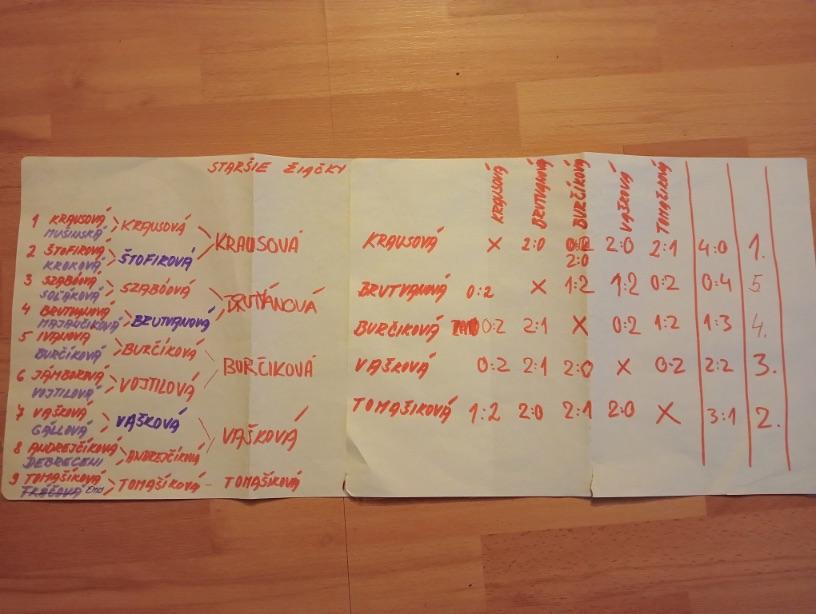 STARŠIE ŽIAČKY
1 KRAUSOVÁ
MUŠINSKÁ
KRAUSOVÁ
2 ŠTOFIROVÁ
KROKOVÁ
ŠTOFIROVÁ
KRAUSOVÁ
3 SZABÓOVÁ
SOĽÁKOVÁ
SZABÓOVÁ
4 BRUTVANOVÁ
MAJANČIKOVÁ
BRUTVANOVÁ
BRUTVÁNOVÁ
5 IVANOVÁ
BURČÍKOVÁ
BURČÍKOVÁ
6 JÁMBOROVÁ
VOJTILOVÁ
VOJTILOVÁ
BURČIKOVÁ
7 VAŠKOVÁ
GÁLLOVÁ
VAŠKOVÁ
8 ANDREJČÍKOVÁ
DEBRECENI
ANDREJČÍKOVÁ
VAŠKOVÁ
9 TOMAŠÍKOVÁ
TOMAŠÍKOVÁ - TOMAŠÍKOVÁ
KRAUSOVÁ BRUTVANOVÁ BURČÍKOVÁ VAŠKOVÁ TOMAŠÍKOVÁ
KRAUSOVÁ X 2:0 2:0 2:0 2:1 4:0 1.
BRUTVANOVÁ 0:2 X 1:2 1:2 0:2 0:4 5
BURČÍKOVÁ 0:2 2:1 X 0:2 1:2 1:3 4.
VAŠKOVÁ 0:2 2:1 2:0 X 0:2 2:2 3.
TOMAŠIKOVÁ 1:2 2:0 2:1 2:0 X 3:1 2.